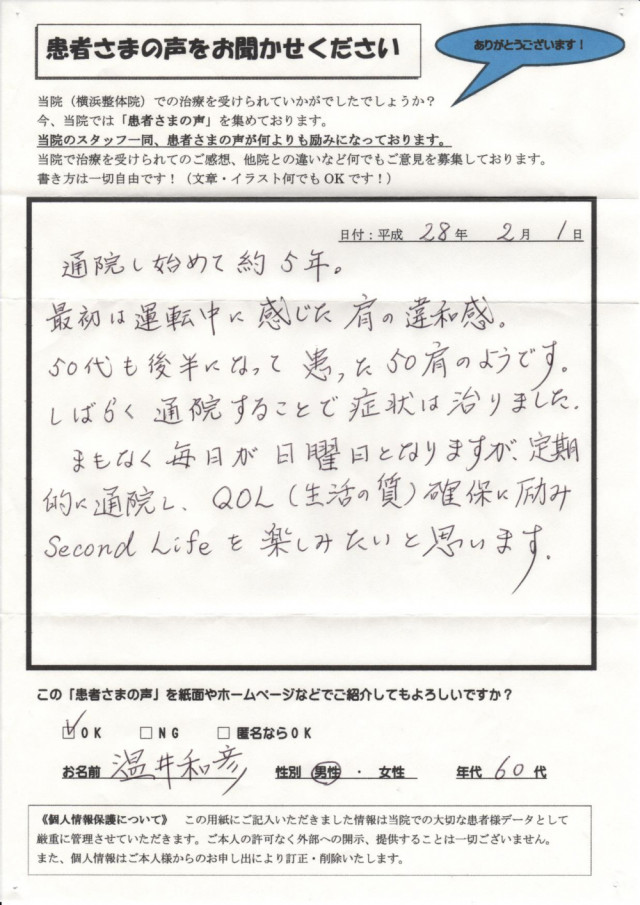 患者さまの声をお聞かせください
ありがとうございます！
当院（横浜整体院）での治療を受けられていかがでしたでしょうか？
今、当院では「患者さまの声」を集めております。
当院のスタッフ一同、患者さまの声が何よりも励みになっております。
当院で治療を受けられてのご感想、他院との違いなど何でもご意見を募集しております。
書き方は一切自由です！（文章・イラスト何でもOKです！）
日付：平成 28年 2月 1日
通院し始めて約5年。
最初は運転中に感じた肩の違和感。
50代も後半になって患った50肩のようです。
しばらく通院することで症状は治りました。
まもなく毎日が日曜日となりますが、定期
的に通院し、QOL（生活の質）確保に励み
Second Lifeを楽しみたいと思います。
この「患者さまの声」を紙面やホームページなどでご紹介してもよろしいですか？
☑OK □NG □匿名ならOK
お名前 温井和彦 性別 男性・女性 年代 60代
《個人情報保護について》 この用紙にご記入いただきました情報は当院での大切な患者様データとして
厳重に管理させていただきます。ご本人の許可なく外部への開示、提供することは一切ございません。
また、個人情報はご本人様からのお申し出により訂正・削除いたします。